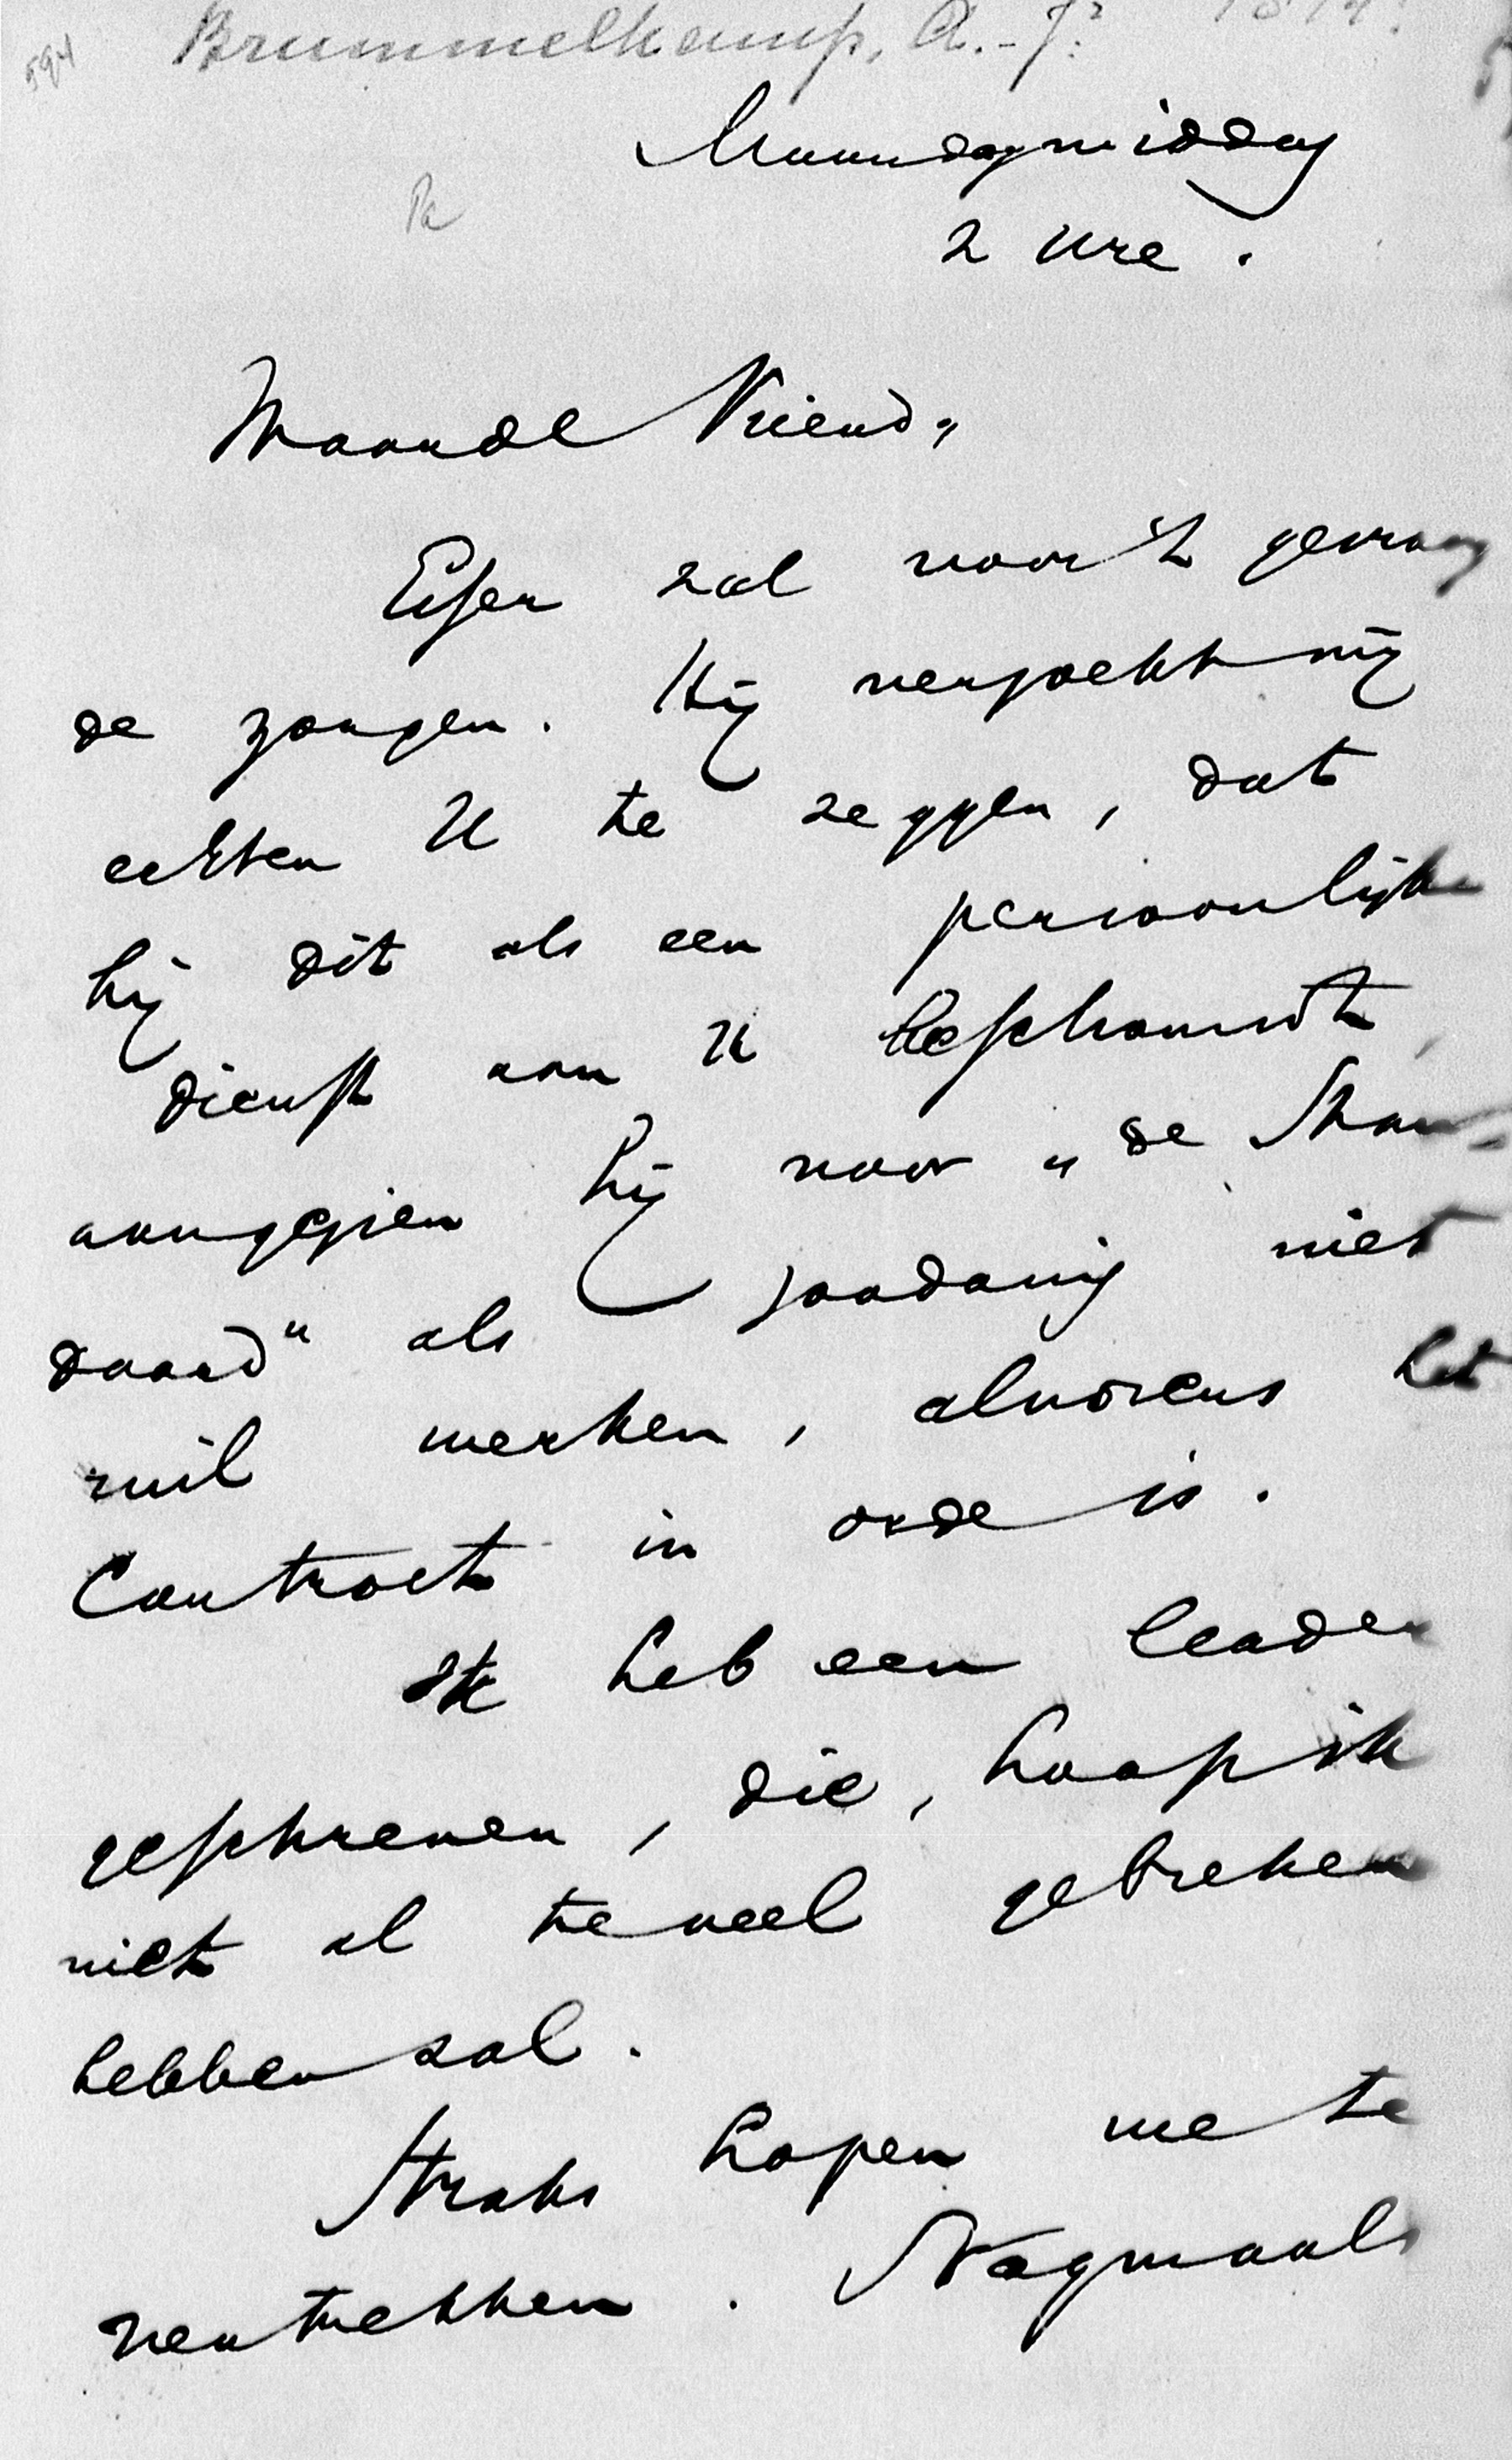 594 Brummelkamp, A.-Jr
Maandagmiddag
2 ure.
Waarde Vriend,
Esser zal voor 't gevraag
de zorgen. Hij verzocht mij
echter U te zeggen, dat
hij dit als een persoonlijke
dienst aan U beschouwdt,
aangezien hij voor „de Stan-
daard" als zoodanig niet
wil werken, alvorens het
Contract in orde is.
Ik heb een leader
geschreven, die, hoop ik
niet al te veel gebreken
hebben zal.
Straks hopen we te
vertrekken. Nogmaals